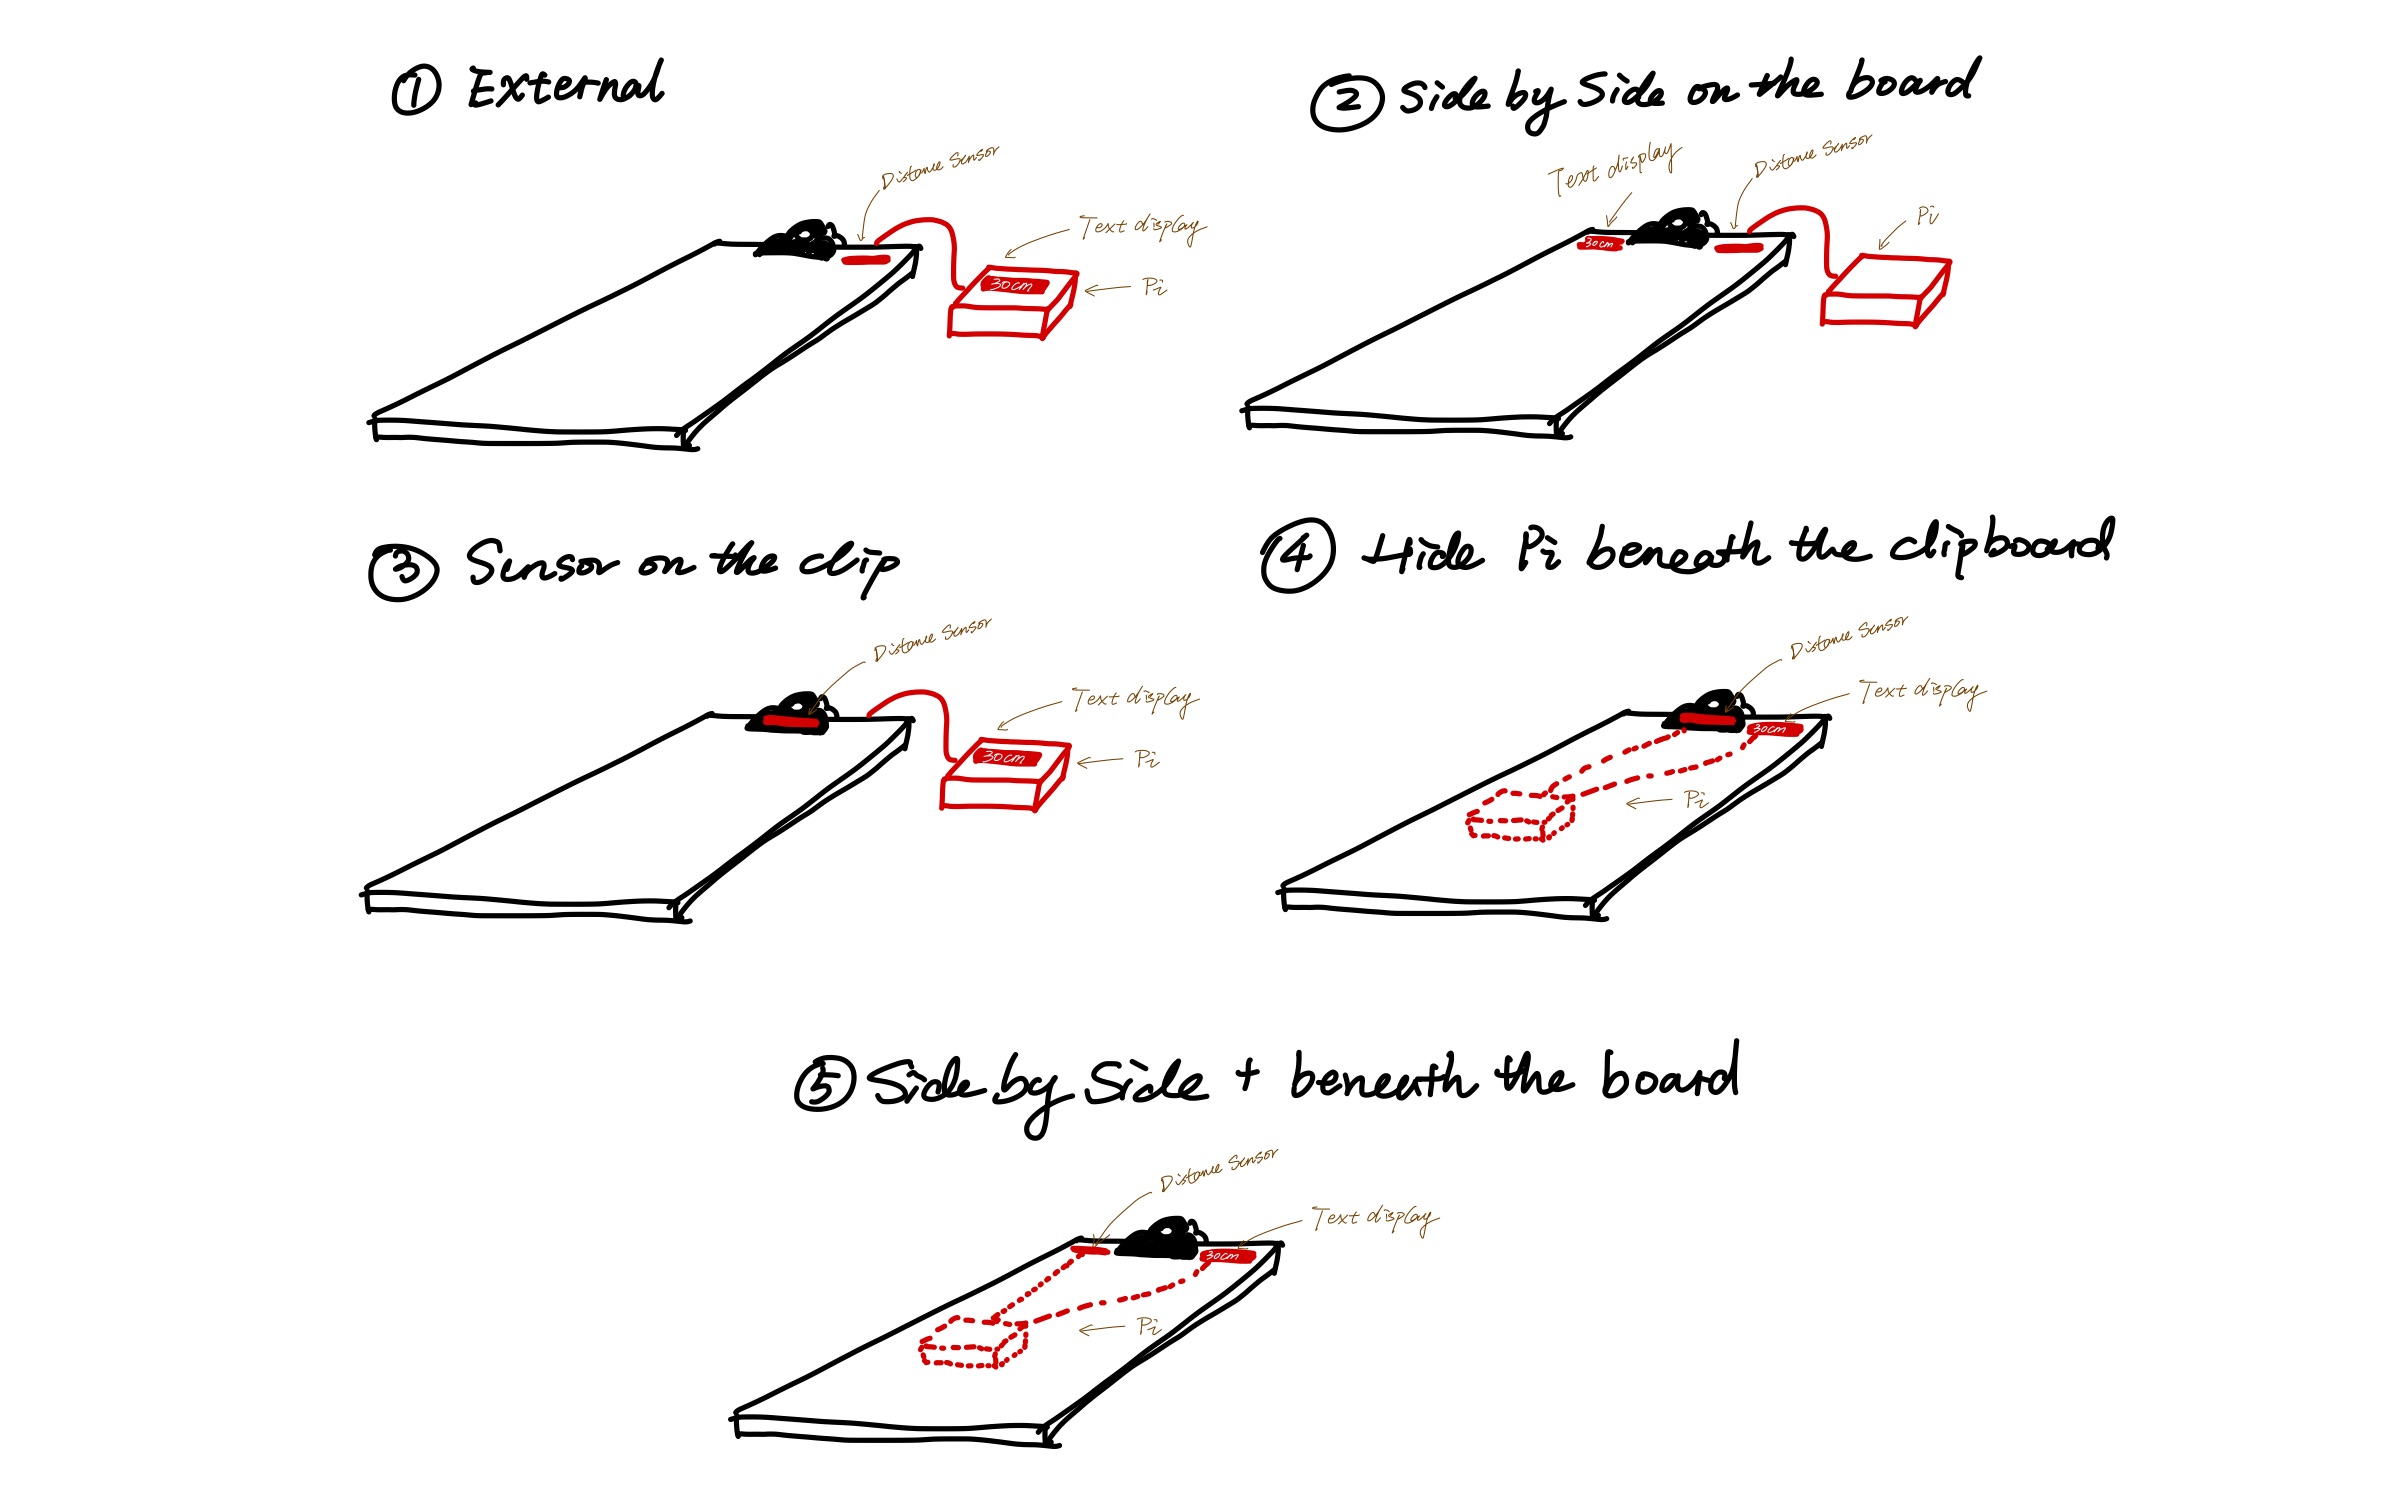 ① External
Distance Sensor
Text display
30cm
Pi
② Side by Side on the board
Text display
Distance Sensor
30cm
Pi
③ Sensor on the clip
Distance Sensor
Text display
30cm
Pi
④ Hide Pi beneath the clipboard
Distance Sensor
Text display
30cm
Pi
⑤ Side by Side + beneath the board
Distance Sensor
Text display
30cm
Pi